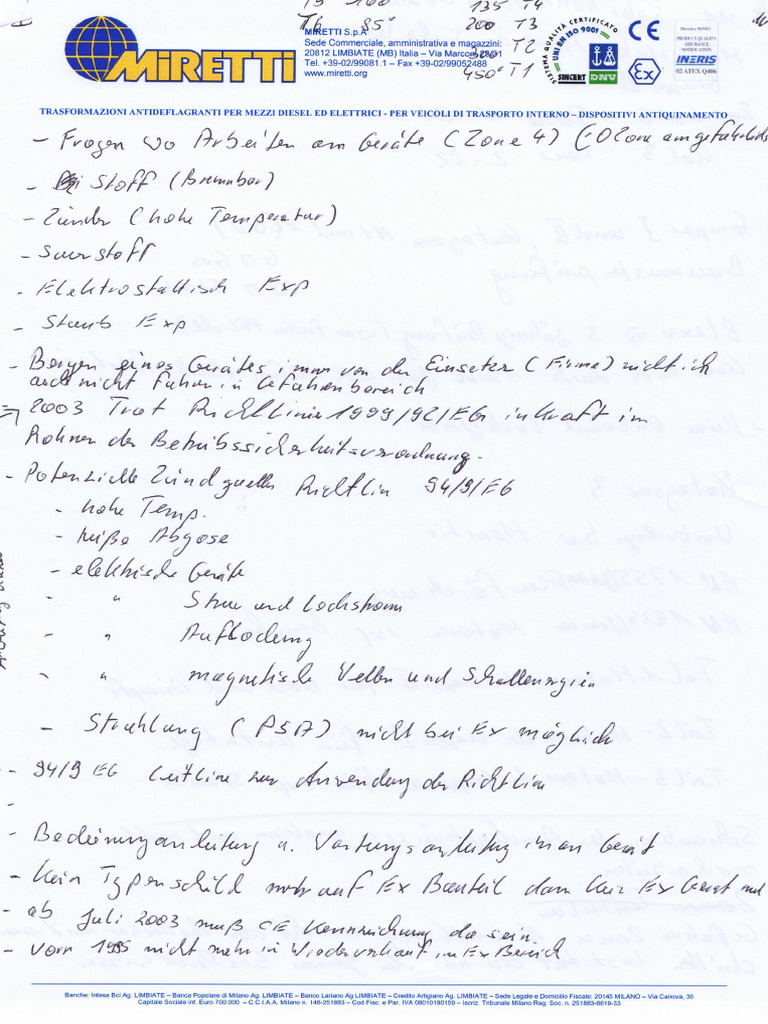 T5 100 135 T4
T6 85° 200 T3
300 T2
450° T1
MIRETTI
MIRETTI S.p.A
Sede Commerciale, amministrativa e magazzini:
20812 LIMBIATE (MB) Italia – Via Marconi
Tel. +39-02/99081.1 – Fax +39-02/99052488
www.miretti.org
SISTEMA QUALITÀ CERTIFICATO
UNI EN ISO 9001
SINCERT DNV
CE
Ex
INERIS
02 ATEX Q406
TRASFORMAZIONI ANTIDEFLAGRANTI PER MEZZI DIESEL ED ELETTRICI - PER VEICOLI DI TRASPORTO INTERNO – DISPOSITIVI ANTIQUINAMENTO
– Fragen wo Arbeiten am Geräte (Zone 4)
– Stoff (Brennbar)
– Zünder (hohe Temperatur)
– Sauerstoff
– Elektrostatisch Exp
– Staub Exp
– Bergen eines Gerätes immer von der Einseter (Firme) nicht ich
auch nicht fahren in Gefahrenbereich
=> 2003 Trat Richtlinie 1999/92/EG inkraft im
Rahmen der Betriebssicherheitsverordnung.
– Potenzielle Zündquellen Richtlin 94/9/EG
– hohe Temp.
– heiße Abgase
– elektrische Geräte
- " Strom und Lochstrom
- " Aufladung
- " magnetische Wellen und Schallenergien
– Strahlung (PSA) nicht bei Ex möglich
– 94/9 EG Leitlinie zur Anwendung der Richtlin
–
– Bedienunganleitung u. Wartungsanleitung im am Gerät
– Kein Typenschild mehr auf Ex Bauteil dann kein Ex Gerät mehr
– ab Juli 2003 muß CE Kennzeichnung da sein.
– vorn 1995 nicht mehr in Wiederverkauf im Ex Bereich
Banche: Intesa Bci Ag. LIMBIATE – Banca Popolare di Milano Ag. LIMBIATE – Banco Lariano Ag LIMBIATE – Credito Artigiano Ag. LIMBIATE – Sede Legale e Domicilio Fiscale: 20145 MILANO – Via Canova, 35
Capitale Sociale int. Euro 700.000 – C.C.I.A.A. Milano n. 146-251883 – Cod Fisc. e Par. IVA 08010180159 – Iscriz. Tribunale Milano Reg. Soc. n. 251883-6619-33